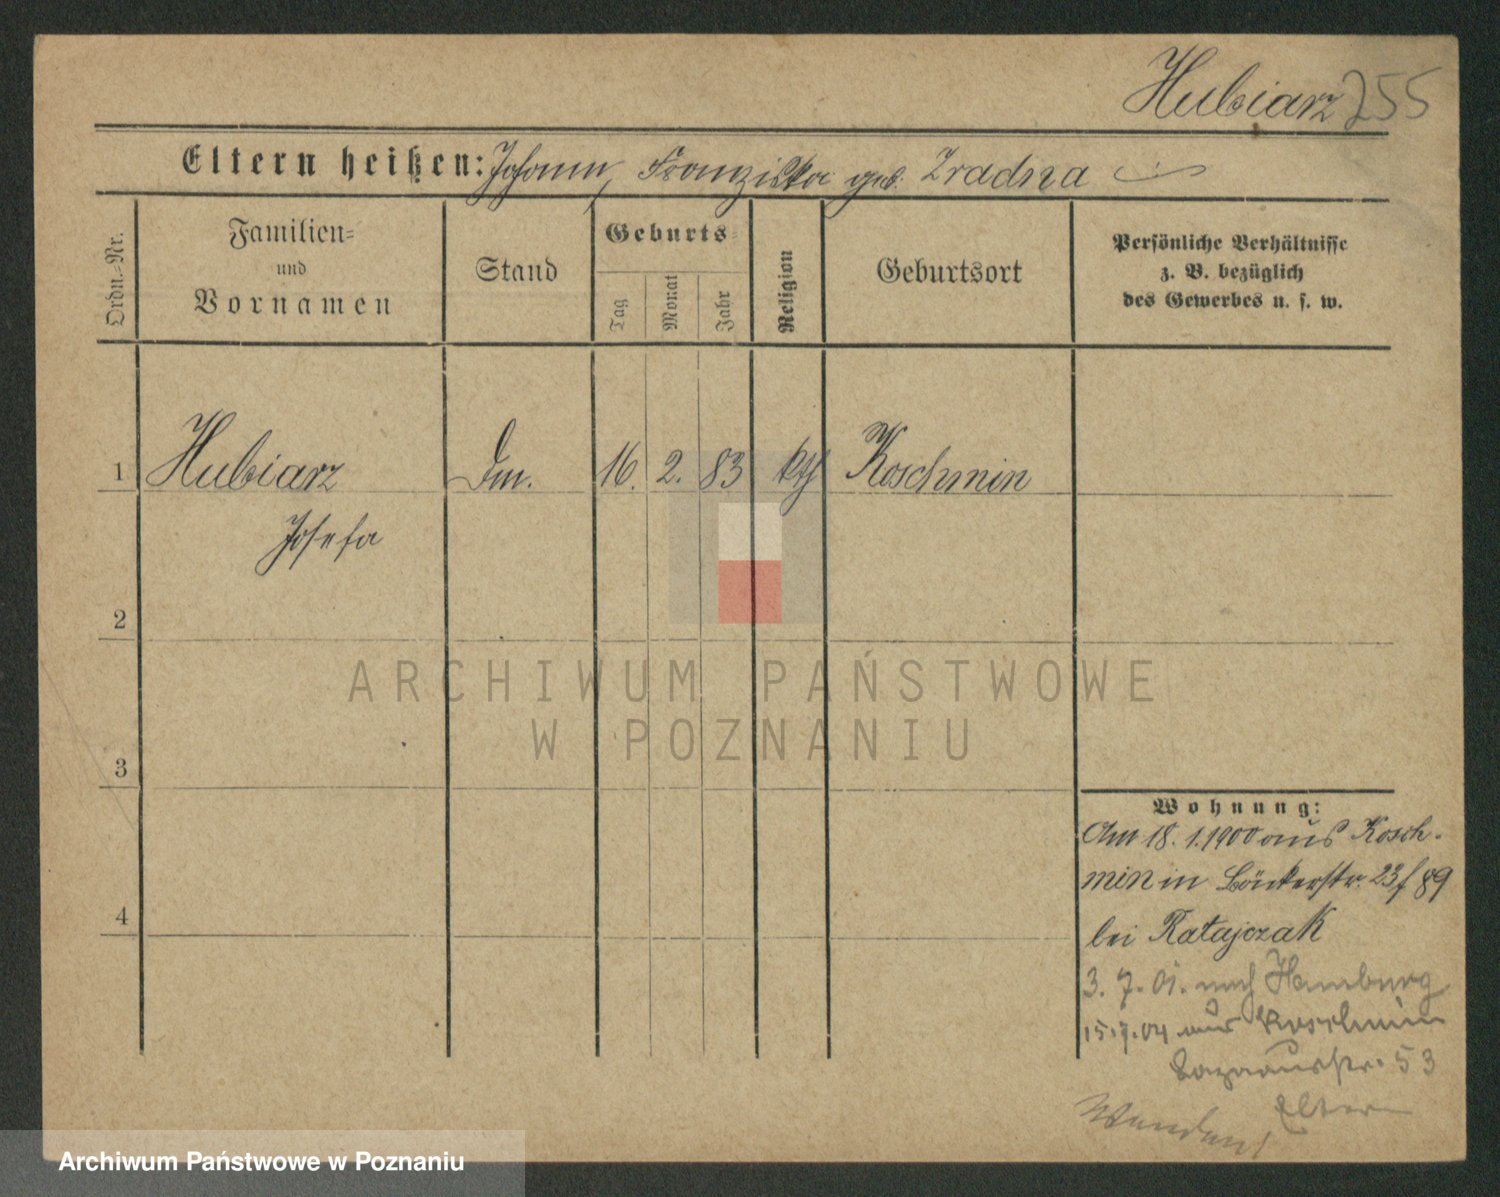 Hubiarz 255
Eltern heißen: Johann, Franziska geb. Zradna
Ordn.-Nr.
Familien-
und
Vornamen
Stand
Geburts-
Tag
Monat
Jahr
Religion
Geburtsort
Persönliche Verhältnisse
z. B. bezüglich
des Gewerbes u. s. w.
1 Hubiarz 16. 2. 83 kth Koschmin
Josefa
2
3
4
Wohnung:
Am 18. 1. 1900 aus Kosch-
min in Bäckerstr. 23 89
bei Ratajczak
3. 7. 01. nach Hamburg
15.7.04 aus Koschmin
53
Eltern
Wenden!
ARCHIWUM PAŃSTWOWE
W POZNANIU
Archiwum Państwowe w Poznaniu